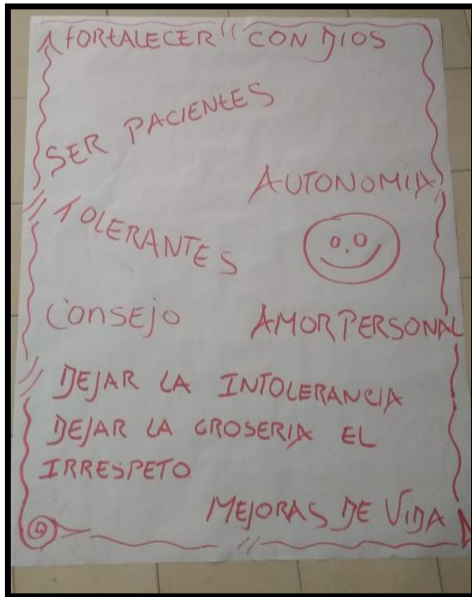 FORTALECER CON DIOS
SER PACIENTES
AUTONOMIA
TOLERANTES
Consejo
AMOR PERSONAL
DEJAR LA INTOLERANCIA
DEJAR LA GROSERIA EL
IRRESPETO
MEJORAS DE VIDA